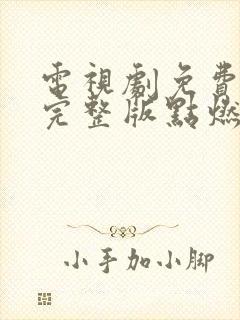 電視劇免費
完整版點燃
小手加小脚